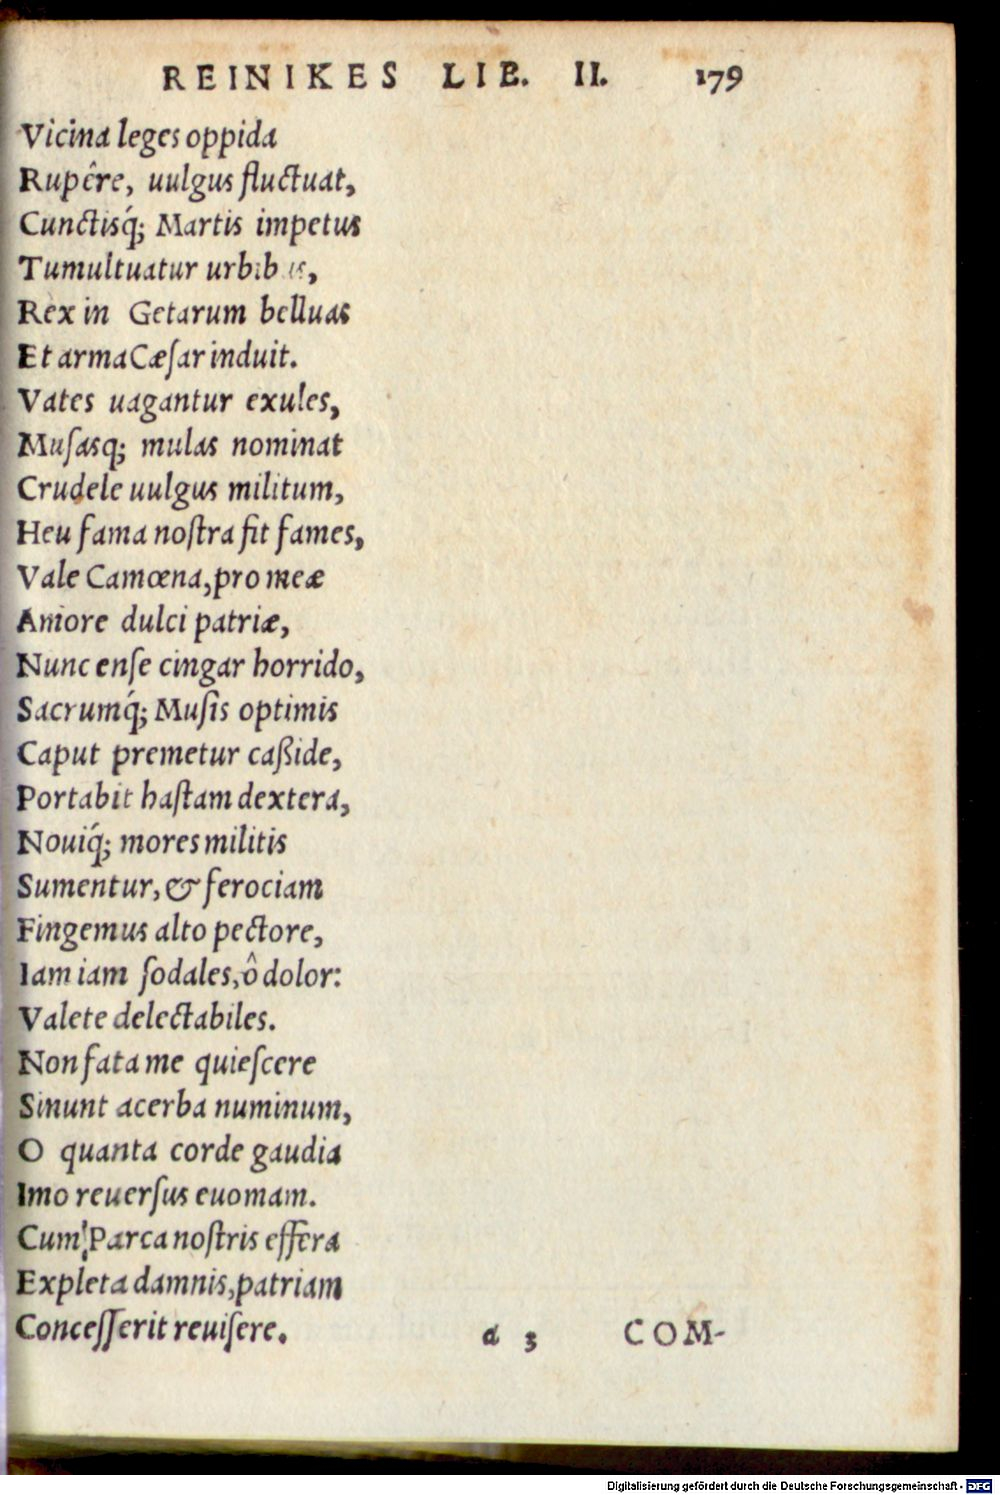 REINIKES LIB. II. 179
Vicina leges oppida
Rupêre, uulgus fluctuat,
Cunctisq́; Martis impetus
Tumultuatur urbibus,
Rex in Getarum belluas
Et arma Cæſar induit.
Vates uagantur exules,
Muſasq; mulas nominat
Crudele uulgus militum,
Heu fama noſtra fit fames,
Vale Camœna, pro meæ
Amore dulci patriæ,
Nunc enſe cingar horrido,
Sacrumq́; Muſis optimis
Caput premetur caßide,
Portabit haſtam dextera,
Nouiq́; mores militis
Sumentur, & ferociam
Fingemus alto pectore,
Iam iam ſodales, ô dolor:
Valete delectabiles.
Non fata me quieſcere
Sinunt acerba numinum,
O quanta corde gaudia
Imo reuerſus euomam.
Cum Parca noſtris effera
Expleta damnis, patriam
Conceſſerit reuiſere.
a 3 COM-
Digitalisierung gefördert durch die Deutsche Forschungsgemeinschaft - DFG